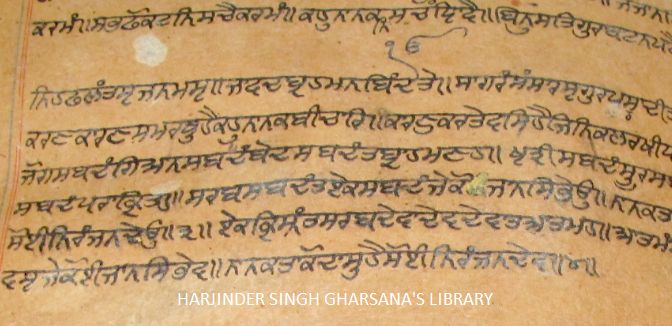 ਕਰਮੰ॥ ਸਭ ਫੋਕਟ ਨਿਸਚੈ ਕਰਮੰ॥ ਕਹੁ ਨਾਨਕ ਨਿਸਚੌ ਧਿਵੈ॥ ਬਿਨੁ ਸਤਿਗੁਰ ਬਾਟ ਨ ਪਾਵੈ
ਨਿਹਫਲੰ ਤਸ੍ਯ ਜਨਮਸ੍ਯ॥ ਜਾਵਦ ਬ੍ਰਹਮ ਨ ਬਿੰਦਤੇ॥ ਸਾਗਰੰ ਸੰਸਾਰਸ੍ਯ ਗੁਰ
ਕਰਣ ਕਾਰਣ ਸਮਰਥੁ ਹੈ ਕਹੁ ਨਾਨਕ ਬੀਚਾਰਿ॥ ਕਾਰਣੁ ਕਰਤੇ ਵਸਿ ਹੈ ਜਿਨਿ ਕਲ ਰਖੀ
ਜੋਗ ਸਬਦੰ ਗਿਆਨ ਸਬਦੰ ਬੇਦ ਸਬਦੰ ਤ ਬ੍ਰਾਹਮਣਹ॥ ਖ੍ਯਤ੍ਰੀ ਸਬਦੰ ਸੂਰ
ਸਬਦੰ ਪਰਾਕ੍ਰਿਤਹ॥ ਸਰਬ ਸਬਦੰ ਤ ਏਕ ਸਬਦੰ ਜੇ ਕੋ ਜਾਨਸਿ ਭੇਉ॥ ਨਾਨਕ
ਸੋਈ ਨਿਰੰਜਨ ਦੇਉ॥੩॥ ਏਕ ਕ੍ਰਿਸ੍ਨੰ ਤ ਸਰਬ ਦੇਵਾ ਦੇਵ ਦੇਵਾ ਤ ਆਤਮਹ॥ ਆਤਮੰ
ਵਸ੍ਯ ਜੇ ਕੋਈ ਜਾਨਸਿ ਭੇਵ॥ ਨਾਨਕ ਤਾ ਕੋ ਦਾਸੁ ਹੈ ਸੋਈ ਨਿਰੰਜਨ ਦੇਵ॥੪॥
HARJINDER SINGH GHARSANA'S LIBRARY